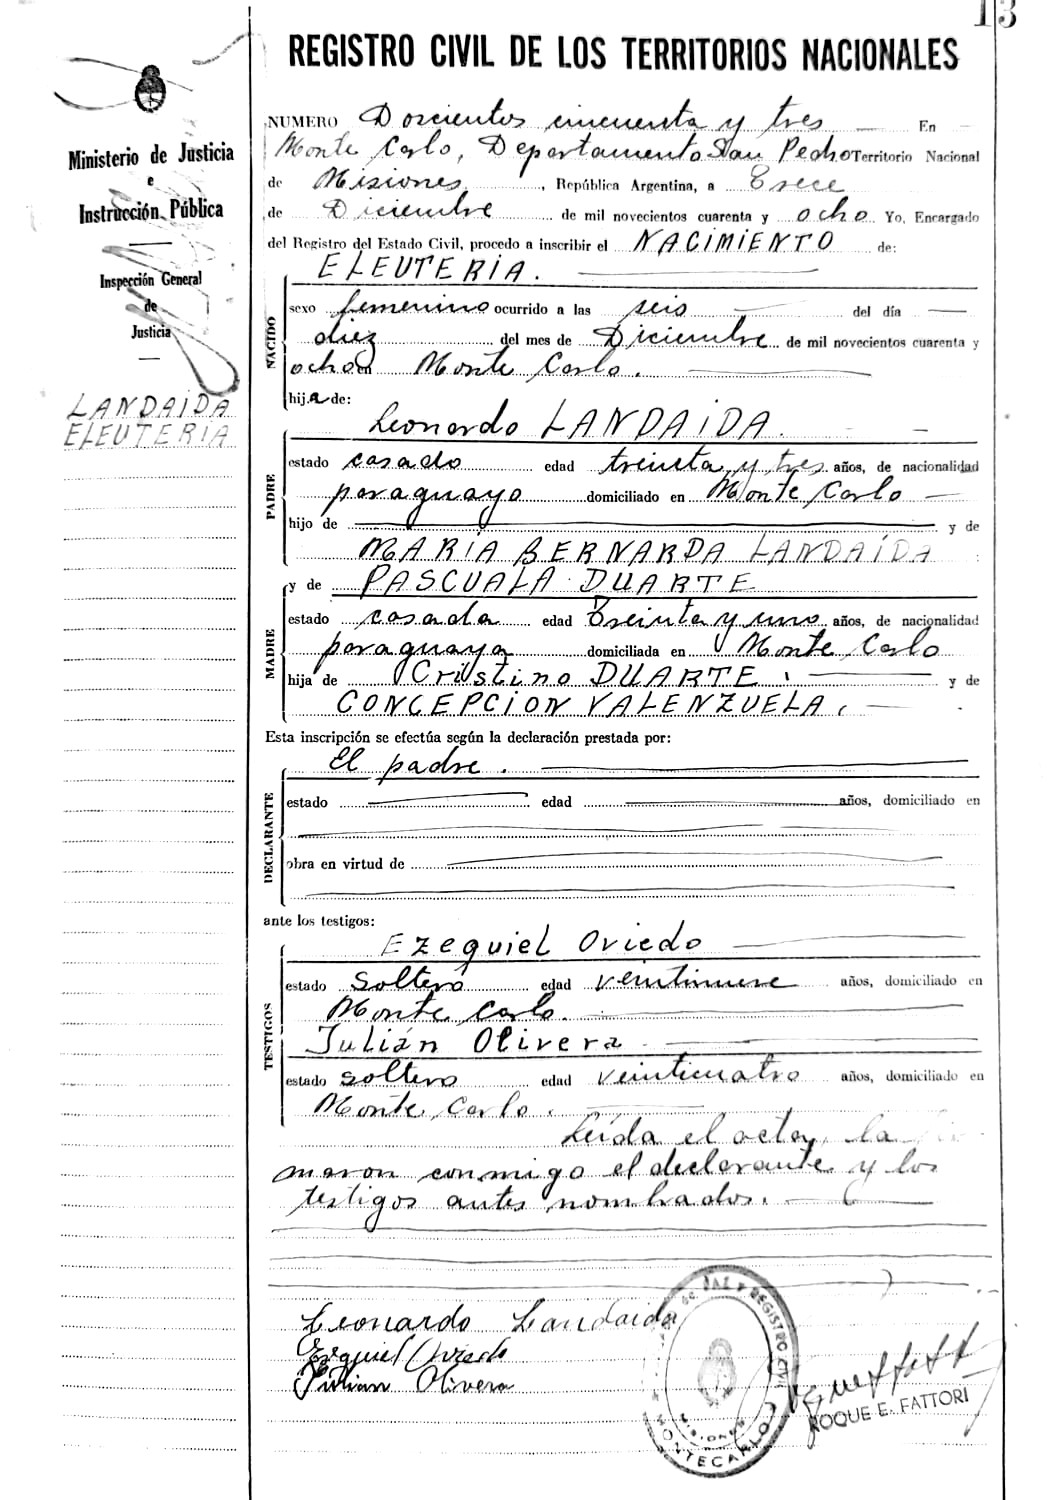 13
REGISTRO CIVIL DE LOS TERRITORIOS NACIONALES
Ministerio de Justicia
e
Instrucción Pública
Inspección General
de
Justicia
LANDAIDA
ELEUTERIA
NUMERO Doscientos cincuenta y tres En
Monte Carlo, Departamento San Pedro Territorio Nacional
de Misiones, República Argentina, a Trece
de Diciembre de mil novecientos cuarenta y ocho Yo, Encargado
del Registro del Estado Civil, procedo a inscribir el NACIMIENTO de:
NACIDO
ELEUTERIA.
sexo femenino ocurrido a las seis del día
diez del mes de Diciembre de mil novecientos cuarenta y
ocho en Monte Carlo.
hija de:
PADRE
Leonardo LANDAIDA.
estado casado edad treinta y tres años, de nacionalidad
paraguayo domiciliado en Monte Carlo
hijo de y de
MARIA BERNARDA LANDAÍDA
MADRE
y de PASCUALA DUARTE
estado casada edad Treinta y uno años, de nacionalidad
paraguaya domiciliada en Monte Carlo
hija de Cristino DUARTE. y de
CONCEPCION VALENZUELA.
Esta inscripción se efectúa según la declaración prestada por:
DECLARANTE
El padre.
estado edad años, domiciliado en
obra en virtud de
ante los testigos:
TESTIGOS
Ezequiel Oviedo
estado soltero edad veintinueve años, domiciliado en
Monte Carlo.
Julián Olivera
estado soltero edad veinticuatro años, domiciliado en
Monte Carlo.
Leída el acta, la
maron conmigo el declarante y los
testigos antes nombrados.
Leonardo Landaida
Ezequiel Oviedo
Julian Olivera
DE PAZ Y REGISTRO CIVIL
MISIONES
MONTECARLO
ROQUE E. FATTORI